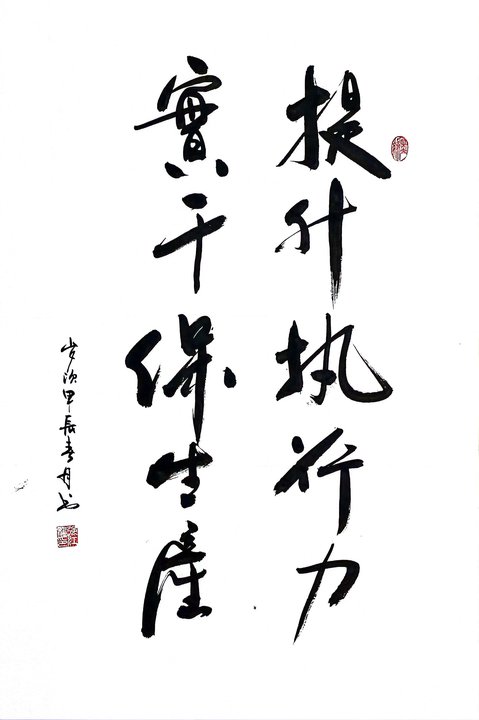 提升执行力
實干保生產
岁次甲辰春月书